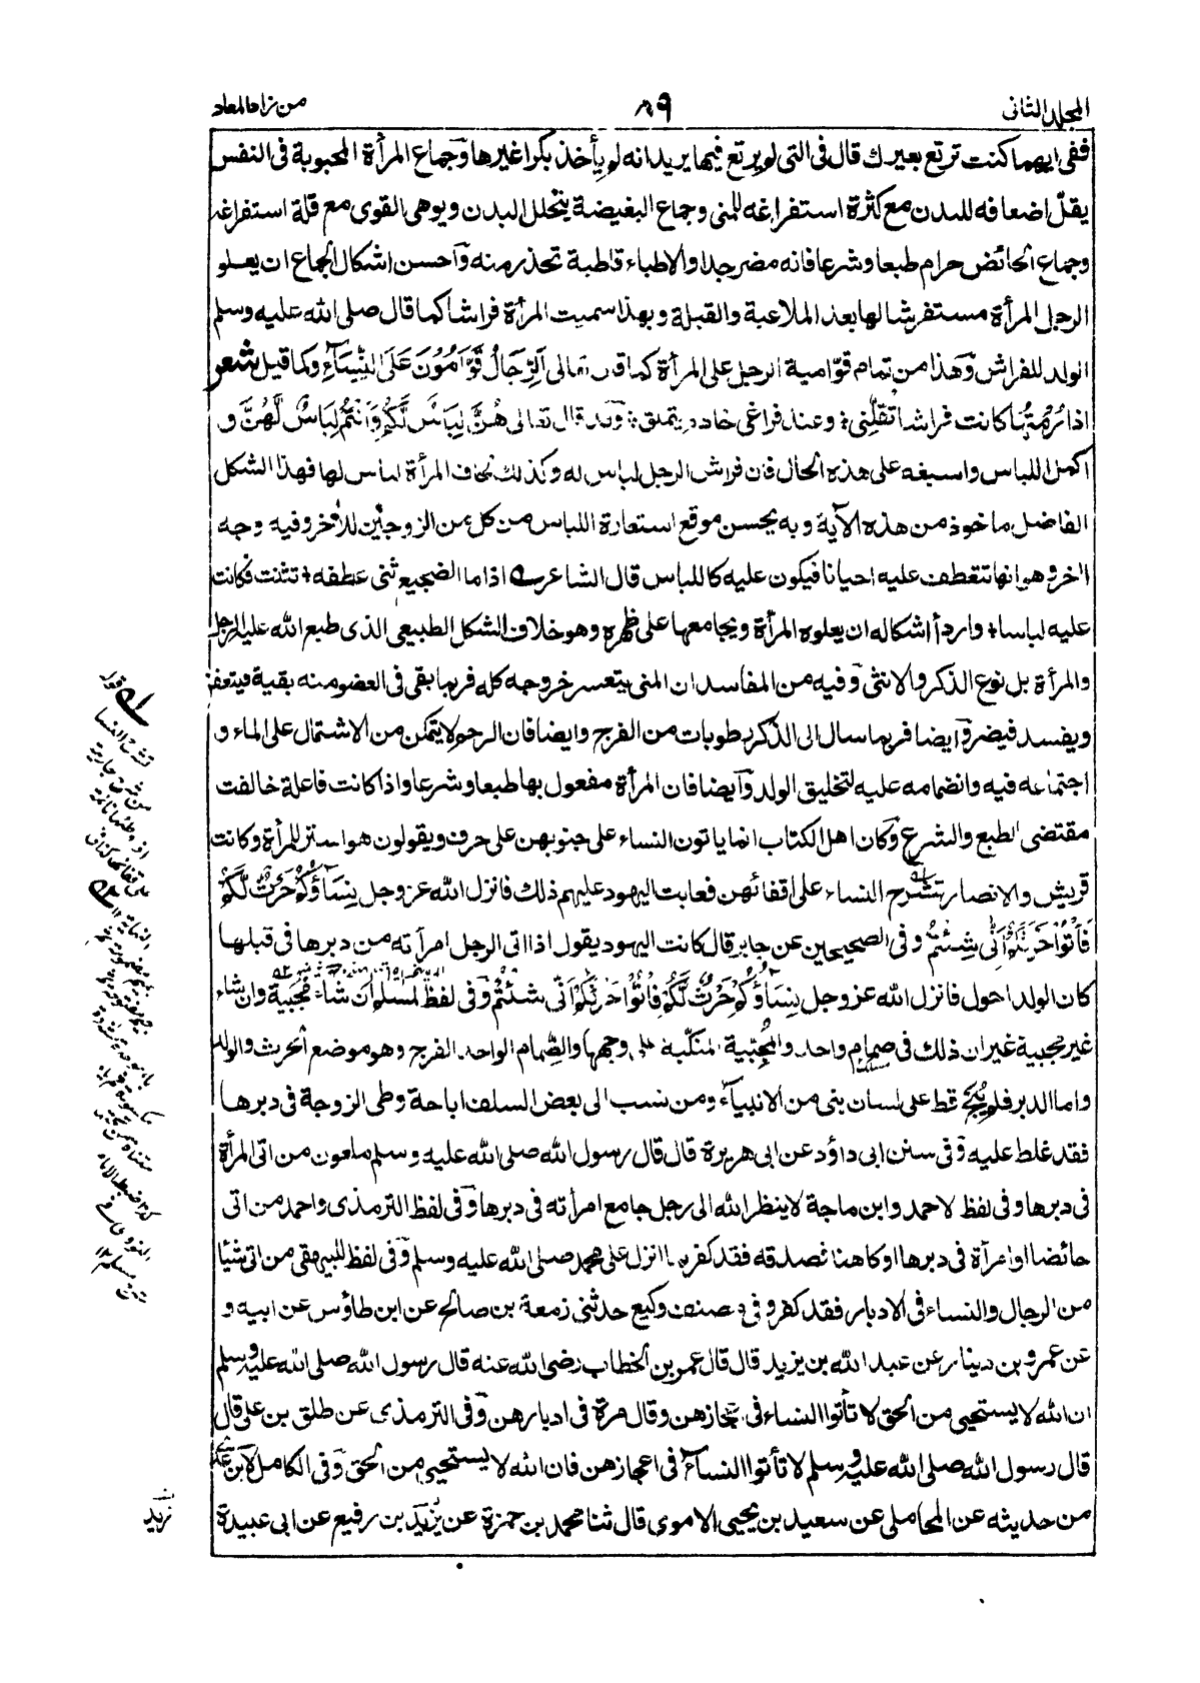 المجلد الثانى
٨٩
من زاد المعاد
ففى ايهما كنت ترتع بعيرك قال فى التى لم يرتع فيها يريد انه لم يأخذ بكرا غيرها وجماع المرأة المحبوبة فى النفس
يقلّ اضعافه للبدن مع كثرة استفراغه للمنى وجماع البغيضة يتحلل البدن ويوهى القوى مع قلة استفراغه
وجماع الحائض حرام طبعا وشرعا فانه مضر جدا والاطباء قاطبة تحذر منه وآحسن اشكال الجماع ان يعلو
الرجل المرأة مستفرشا لها بعد الملاعبة والقبلة وبهذا سميت المرأة فراشا كما قال صلى الله عليه وسلم
الولد للفراش وهذا من تمام قوّامية الرجل على المرأة كما قال تعالى اَلرِّجَالُ قَوَّامُوْنَ عَلَى النِّسَآءِ وكما قيل شعر
اذا رُمتُها كانت فراشا تقلّنى ؛ وعند فراغى خادم يتملق ؛ وقد قال تعالى هُنَّ لِبَاسٌ لَّكُمْ وَاَنْتُمْ لِبَاسٌ لَّهُنَّ و
اكمل اللباس واسبغه على هذه الحال فان فراش الرجل لباس له وكذلك لحاف المرأة لباس لها فهذا الشكل
الفاضل ماخوذ من هذه الآية وبه يحسن موقع استعارة اللباس من كل من الزوجين للآخر وفيه وجه
اخر وهو انها تنعطف عليه احيانا فيكون عليه كاللباس قال الشاعر اذا ما الضجيع ثنى عطفه ؛ تثنت فكانت
عليه لباسا ؛ واردأ اشكاله ان يعلوه المرأة ويجامعها على ظهره وهو خلاف الشكل الطبيعى الذى طبع الله عليه الرجل
والمرأة بل نوع الذكر والانثى وفيه من المفاسد ان المنى يتعسر خروجه كله فربما بقى فى العضو منه بقية فيتعفن
ويفسد فيضر وآيضا فربما سال الى الذكر رطوبات من الفرج وايضا فان الرحم لا يتمكن من الاشتمال على الماء و
اجتماعه فيه وانضمامه عليه لتخليق الولد وآيضا فان المرأة مفعول بها طبعا وشرعا واذا كانت فاعلة خالفت
مقتضى الطبع والشرع وكان اهل الكتاب انما ياتون النساء على جنوبهن على حرف ويقولون هو استر للمرأة وكانت
قريش والانصار تشرح النساء على اقفائهن فعابت اليهود عليهم ذلك فانزل الله عز وجل نِسَآؤُكُمْ حَرْثٌ لَّكُمْ
فَأْتُوْا حَرْثَكُمْ اَنّٰى شِئْتُمْ وفى الصحيحين عن جابر قال كانت اليهود يقول اذا اتى الرجل امرأته من دبرها فى قبلها
كان الولد احول فانزل الله عز وجل نِسَآؤُكُمْ حَرْثٌ لَّكُمْ فَأْتُوْا حَرْثَكُمْ اَنّٰى شِئْتُمْ وفى لفظ لمسلم ان شاء مُجَبِّيَة وان شاء
غير مجبية غير ان ذلك فى صمام واحد والمُجَبِّية المنكبّة على وجهها والصِّمام الواحد الفرج وهو موضع الحرث والولد
واما الدبر فلم يُبَح قط على لسان نبى من الانبياء ومن نسب الى بعض السلف اباحة وطى الزوجة فى دبرها
فقد غلط عليه وفى سنن ابى داؤد عن ابى هريرة قال قال رسول الله صلى الله عليه وسلم ملعون من اتى المرأة
فى دبرها وفى لفظ لاحمد وابن ماجة لا ينظر الله الى رجل جامع امرأته فى دبرها وفى لفظ الترمذى واحمد من اتى
حائضا او امرأة فى دبرها او كاهنا فصدقه فقد كفر بما انزل على محمد صلى الله عليه وسلم وفى لفظ للبيهقى من اتى شيئا
من الرجال والنساء فى الادبار فقد كفر وفى مصنف وكيع حدثنى زمعة بن صالح عن ابن طاؤس عن ابيه و
عن عمرو بن دينار عن عبد الله بن يزيد قال قال عمر بن الخطاب رضى الله عنه قال رسول الله صلى الله عليه وسلم
ان الله لا يستحيى من الحق لا تأتوا النساء فى عجازهن وقال مرة فى ادبارهن وفى الترمذى عن طلق بن على قال
قال رسول الله صلى الله عليه وسلم لا تأتوا النساء فى اعجازهن فان الله لا يستحيى من الحق وفى الكامل لابن عدى
من حديثه عن المحاملى عن سعيد بن يحيى الاموى قال ثنا محمد بن حمزة عن يزيد بن رفيع عن ابى عبيدة
زيد